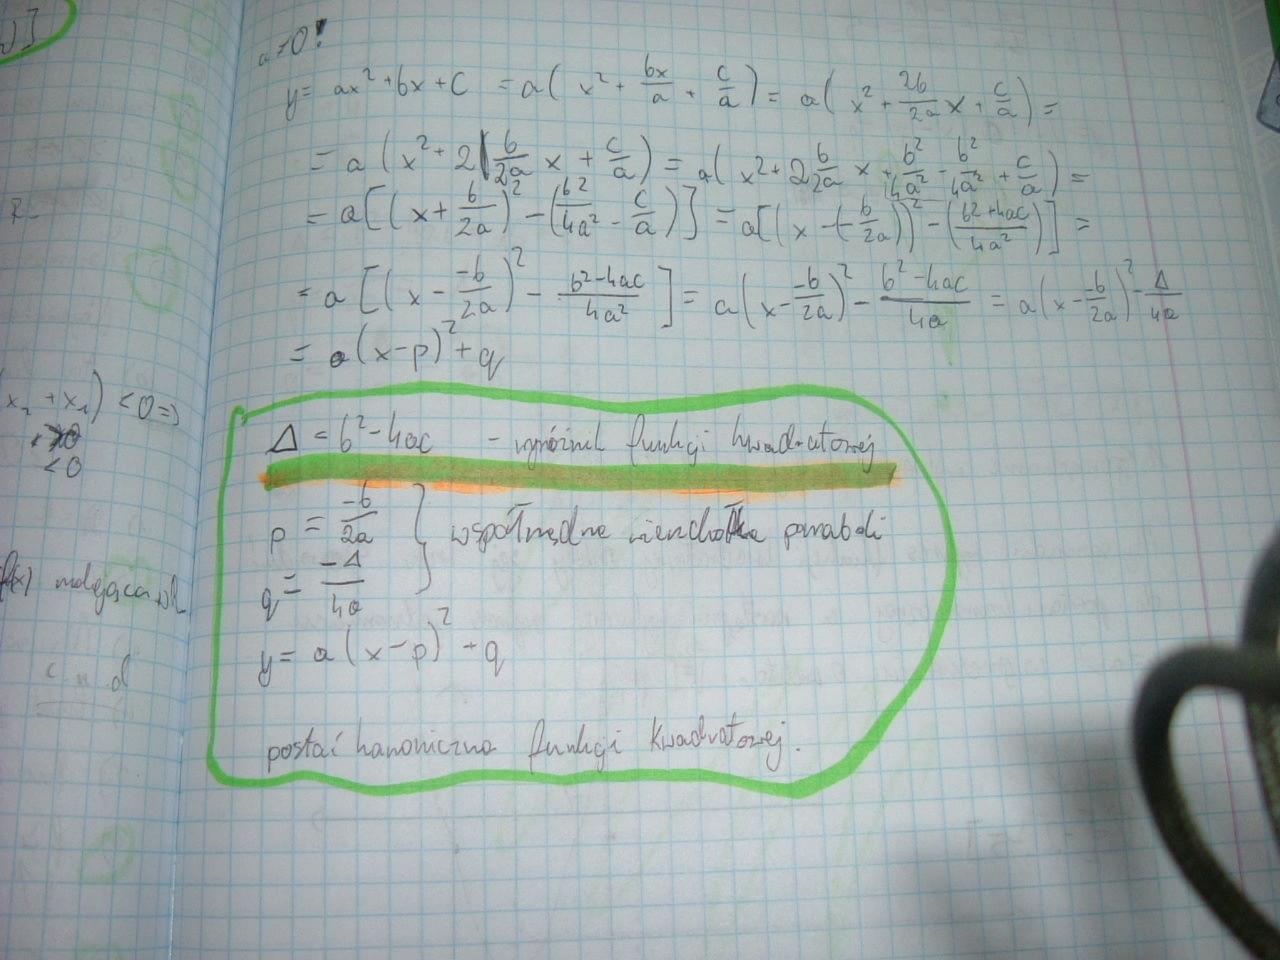 a ≠ 0!
y = ax² + bx + c = a( x² + bx/a + c/a ) = a( x² + 2b/2a x + c/a ) =
= a ( x² + 2 b/2a x + c/a ) = a( x² + 2 b/2a x + b²/4a² - b²/4a² + c/a ) =
= a[ ( x + b/2a )² - ( b²/4a² - c/a ) ] = a[ ( x - (- b/2a ) )² - ( b² + 4ac/4a² ) ] =
= a [ ( x - -b/2a )² - b² - 4ac/4a² ] = a ( x - -b/2a )² - b² - 4ac/4a = a ( x - -b/2a )² - Δ/4a
= a ( x - p )² + q
Δ = b² - 4ac - wyróżnik funkcji kwadratowej
p = -b/2a } współrzędne wierzchołka paraboli
q = -Δ/4a
y = a ( x - p )² + q
postać kanoniczna funkcji kwadratowej.
x₂ + x₁) < 0 =>
< 0
f(x) malejąca
c n d